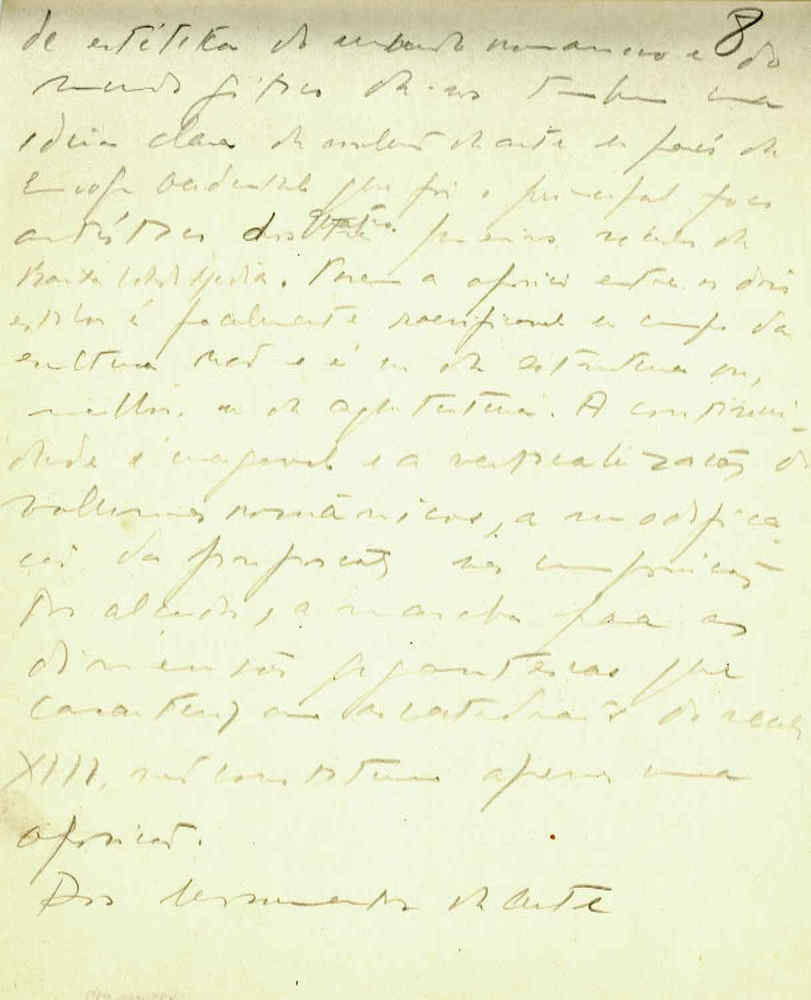 8
de estética do mundo romanico e do
mundo gótico dá-nos tambem uma
ideia clara da evolução da arte no país da
Europa Ocidental que foi o principal foco
artístico dos quatro primeiros seculos da
Baixa Idade Média. Porem a oposição entre os dois
estilos é facilmente no campo da
escultura não o é no da estrutura ou,
melhor, no da arquitectura. A continui-
dade é inegavel e a verticalização dos
volumes românicos, a modifica-
ção da proporção nas composições
das alçadas, a marcha para as
dimensões gigantescas que
caracterizam as catedrais do seculo
XIII, não constituem apenas uma
oposição.
Dos monumentos da arte